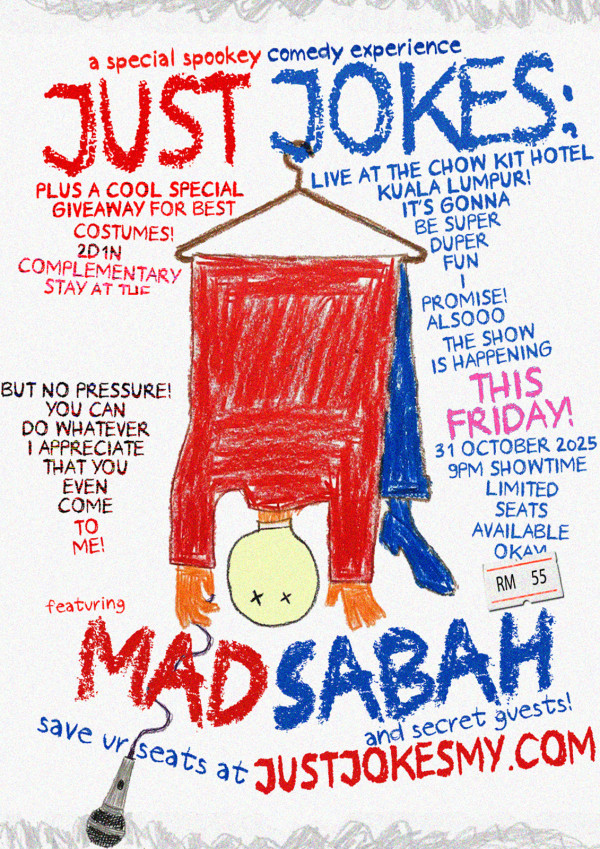 a special spookey comedy experience
JUST JOKES:
PLUS A COOL SPECIAL
GIVEAWAY FOR BEST
COSTUMES!
2D1N
COMPLEMENTARY
STAY AT THE
BUT NO PRESSURE!
YOU CAN
DO WHATEVER
I APPRECIATE
THAT YOU
EVEN
COME
TO
ME!
LIVE AT THE CHOW KIT HOTEL
KUALA LUMPUR!
IT'S GONNA
BE SUPER
DUPER
FUN
I
PROMISE!
ALSOOO
THE SHOW
IS HAPPENING
THIS
FRIDAY!
31 OCTOBER 2025
9PM SHOWTIME
LIMITED
SEATS
AVAILABLE
OKAY
RM 55
featuring
MAD SABAH
and secret guests!
save ur seats at JUSTJOKESMY.COM